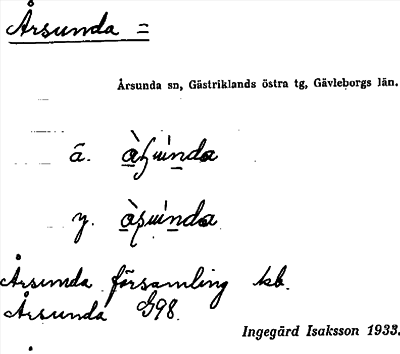 Årsunda =
Årsunda sn, Gästriklands östra tg, Gävleborgs län.
ä.
y.
Årsunda församling kb.
Årsunda G98.
Ingegärd Isaksson 1933.